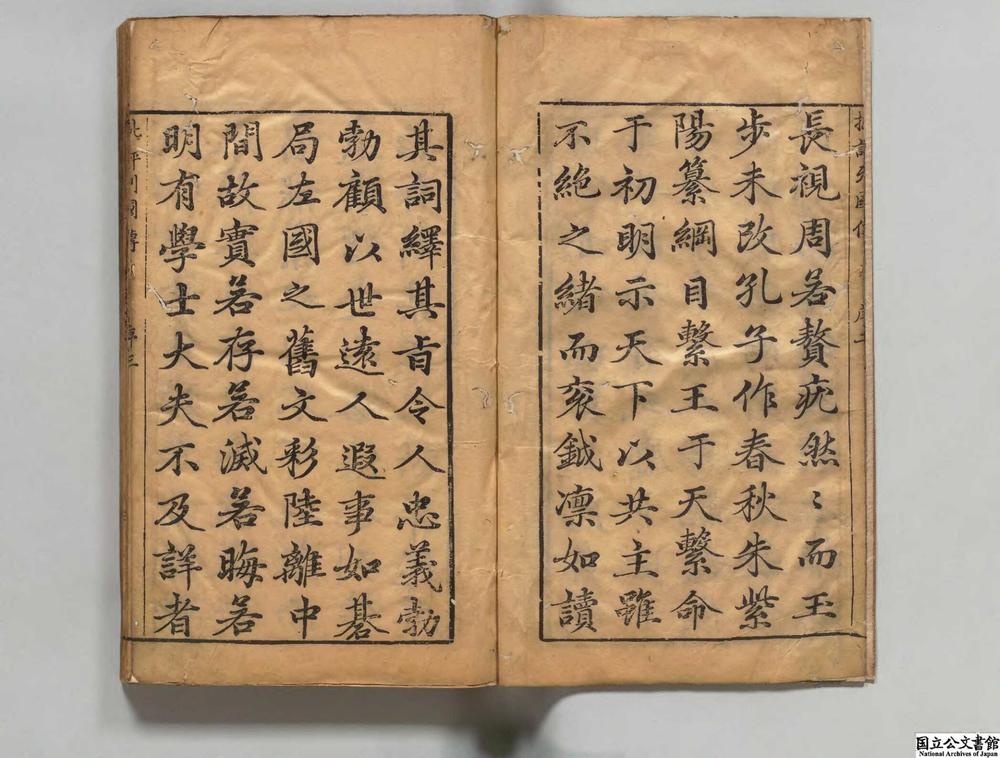 長視周若贅疣然〻而玉
步未改孔子作春秋朱紫
陽纂綱目繫王于天繫命
于初明示天下以共主雖
不絶之緒而衮鉞凛如讀
其詞繹其旨令人忠義勃
勃顧以世遠人遐事如碁
局左國之舊文彩陸離中
間故實若存若滅若晦若
明有學士大夫不及詳者
批評列國傳
序三
国立公文書館
National Archives of Japan